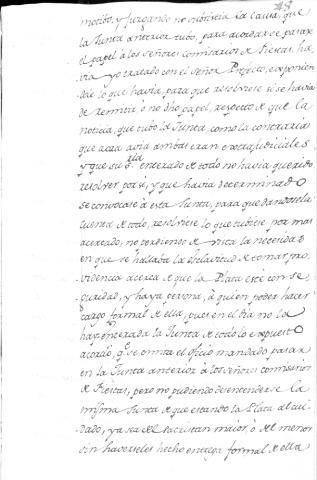 48
motibo, y juzgando no subsistia la causa, que
la Junta anterior tubo, para acordar se pasase
el papel à los señores comisarios de Fiestas, ha-
via yo tratado con el Señor Prefecto, exponien-
dole lo que havia, para que resolviese si se havia
de remitir, ò no dho papel, respecto de que la
noticia, que tubo la Junta, como la contraria
que acra avia ambas eran extrajudiciales
y que su Ilma enterado de todo no havia querido
resolver por si, y que havia determinado
se convocase à esta Junta, para que dandosela
cuenta de todo, resolviese lo que tubiese por mas
acertado, no perdiendo de vista la necesidad
en que se hallaba la esclavitud de tomar pro-
videncia acerca de que la Plata esté con se-
guridad, y haya persona, à quien poder hacer
cargo formal de ella, pues en el dia no la
hay: enterada la Junta de todo lo expuesto
acordó, qe se omita el oficio mandado pasar
en la Junta anterior à los señores comisarios
de Fiestas, pero no pudiendo desentenderse la
misma Junta de que estando la Plata al cui-
dado, ya sea del sacristan maior, ò del menor
sin haverseles hecho entrega formal de ella